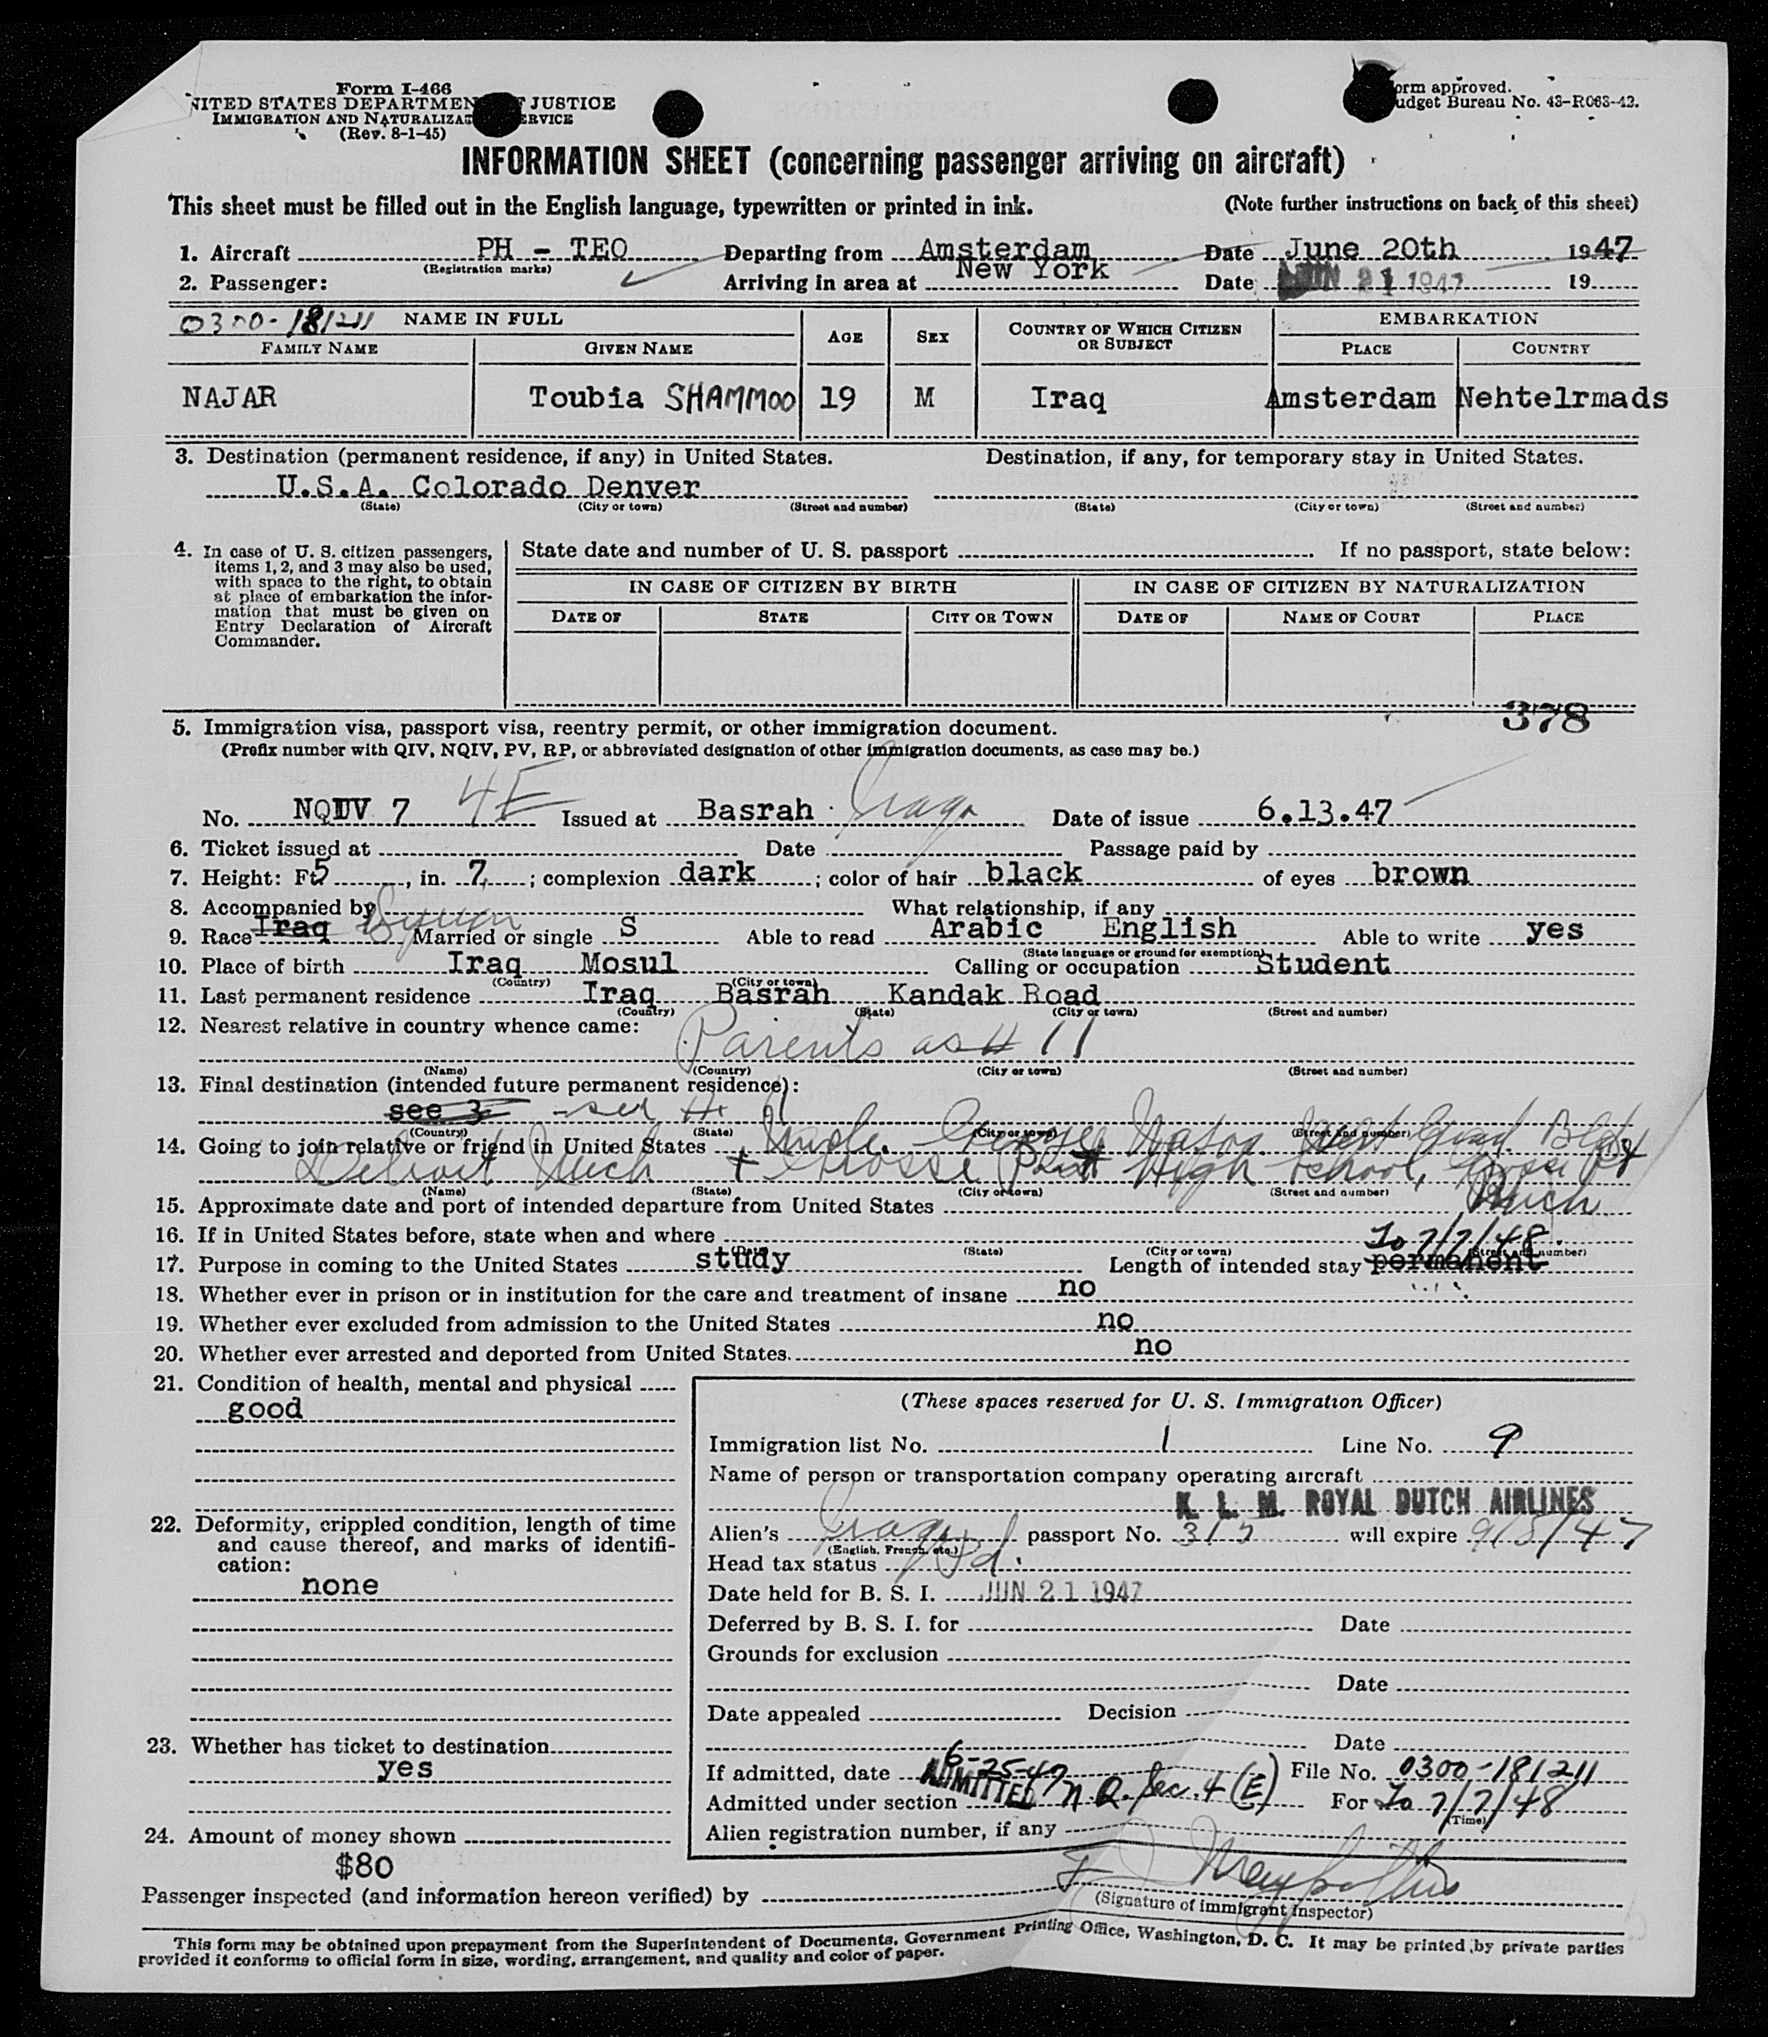 Form I-466
UNITED STATES DEPARTMENT OF JUSTICE
IMMIGRATION AND NATURALIZATION SERVICE
(Rev. 8-1-45)
Form approved.
Budget Bureau No. 43-R063-42.
INFORMATION SHEET (concerning passenger arriving on aircraft)
This sheet must be filled out in the English language, typewritten or printed in ink. (Note further instructions on back of this sheet)
1. Aircraft PH - TEO Departing from Amsterdam Date June 20th 1947
(Registration marks)
2. Passenger: Arriving in area at New York Date JUN 21 1947 19
0300-181211 NAME IN FULL AGE SEX COUNTRY OF WHICH CITIZEN OR SUBJECT EMBARKATION
FAMILY NAME GIVEN NAME PLACE COUNTRY
NAJAR Toubia SHAMMOO 19 M Iraq Amsterdam Nehtelrmads
3. Destination (permanent residence, if any) in United States. Destination, if any, for temporary stay in United States.
U.S.A. Colorado Denver
(State) (City or town) (Street and number) (State) (City or town) (Street and number)
4. In case of U. S. citizen passengers, items 1, 2, and 3 may also be used, with space to the right, to obtain at place of embarkation the information that must be given on Entry Declaration of Aircraft Commander.
State date and number of U. S. passport If no passport, state below:
IN CASE OF CITIZEN BY BIRTH IN CASE OF CITIZEN BY NATURALIZATION
DATE OF STATE CITY OR TOWN DATE OF NAME OF COURT PLACE
378
5. Immigration visa, passport visa, reentry permit, or other immigration document.
(Prefix number with QIV, NQIV, PV, RP, or abbreviated designation of other immigration documents, as case may be.)
No. NQIV 7 4E Issued at Basrah Iraq Date of issue 6.13.47
6. Ticket issued at Date Passage paid by
7. Height: Ft. 5, in. 7,; complexion dark; color of hair black of eyes brown
8. Accompanied by What relationship, if any
9. Race Iraq Syrian Married or single S Able to read Arabic English Able to write yes
(State language or ground for exemption)
10. Place of birth Iraq Mosul Calling or occupation Student
(Country) (City or town)
11. Last permanent residence Iraq Basrah Kandak Road
(Country) (State) (City or town) (Street and number)
12. Nearest relative in country whence came:
Parents as # 11
(Name) (Country) (City or town) (Street and number)
13. Final destination (intended future permanent residence):
see 3 - see # 11
(Country) (State) (City or town) (Street and number)
14. Going to join relative or friend in United States Uncle. George Bldg
Detroit Mich + Grosse Point High School, Grosse Pt
(Name) (State) (City or town) (Street and number)
Mich
15. Approximate date and port of intended departure from United States
16. If in United States before, state when and where To 7/7/48.
(State) (City or town) (Street and number)
17. Purpose in coming to the United States study Length of intended stay permanent
18. Whether ever in prison or in institution for the care and treatment of insane no
19. Whether ever excluded from admission to the United States no
20. Whether ever arrested and deported from United States. no
21. Condition of health, mental and physical
good
22. Deformity, crippled condition, length of time and cause thereof, and marks of identification:
none
23. Whether has ticket to destination
yes
24. Amount of money shown
$80
(These spaces reserved for U. S. Immigration Officer)
Immigration list No. 1 Line No. 9
Name of person or transportation company operating aircraft
K. L. M. ROYAL DUTCH AIRLINES
Alien's Iraq passport No. 315 will expire 9/8/47
(English, French, etc.)
Head tax status Pd.
Date held for B. S. I. JUN 21 1947
Deferred by B. S. I. for Date
Grounds for exclusion
Date
Date appealed Decision
Date
If admitted, date 6-25-47 File No. 0300-181211
ADMITTED
Admitted under section N.Q. Sec. 4 (E) For To 7/7/48
(Time)
Alien registration number, if any
Passenger inspected (and information hereon verified) by
(Signature of immigrant inspector)
This form may be obtained upon prepayment from the Superintendent of Documents, Government Printing Office, Washington, D. C. It may be printed by private parties
provided it conforms to official form in size, wording, arrangement, and quality and color of paper.